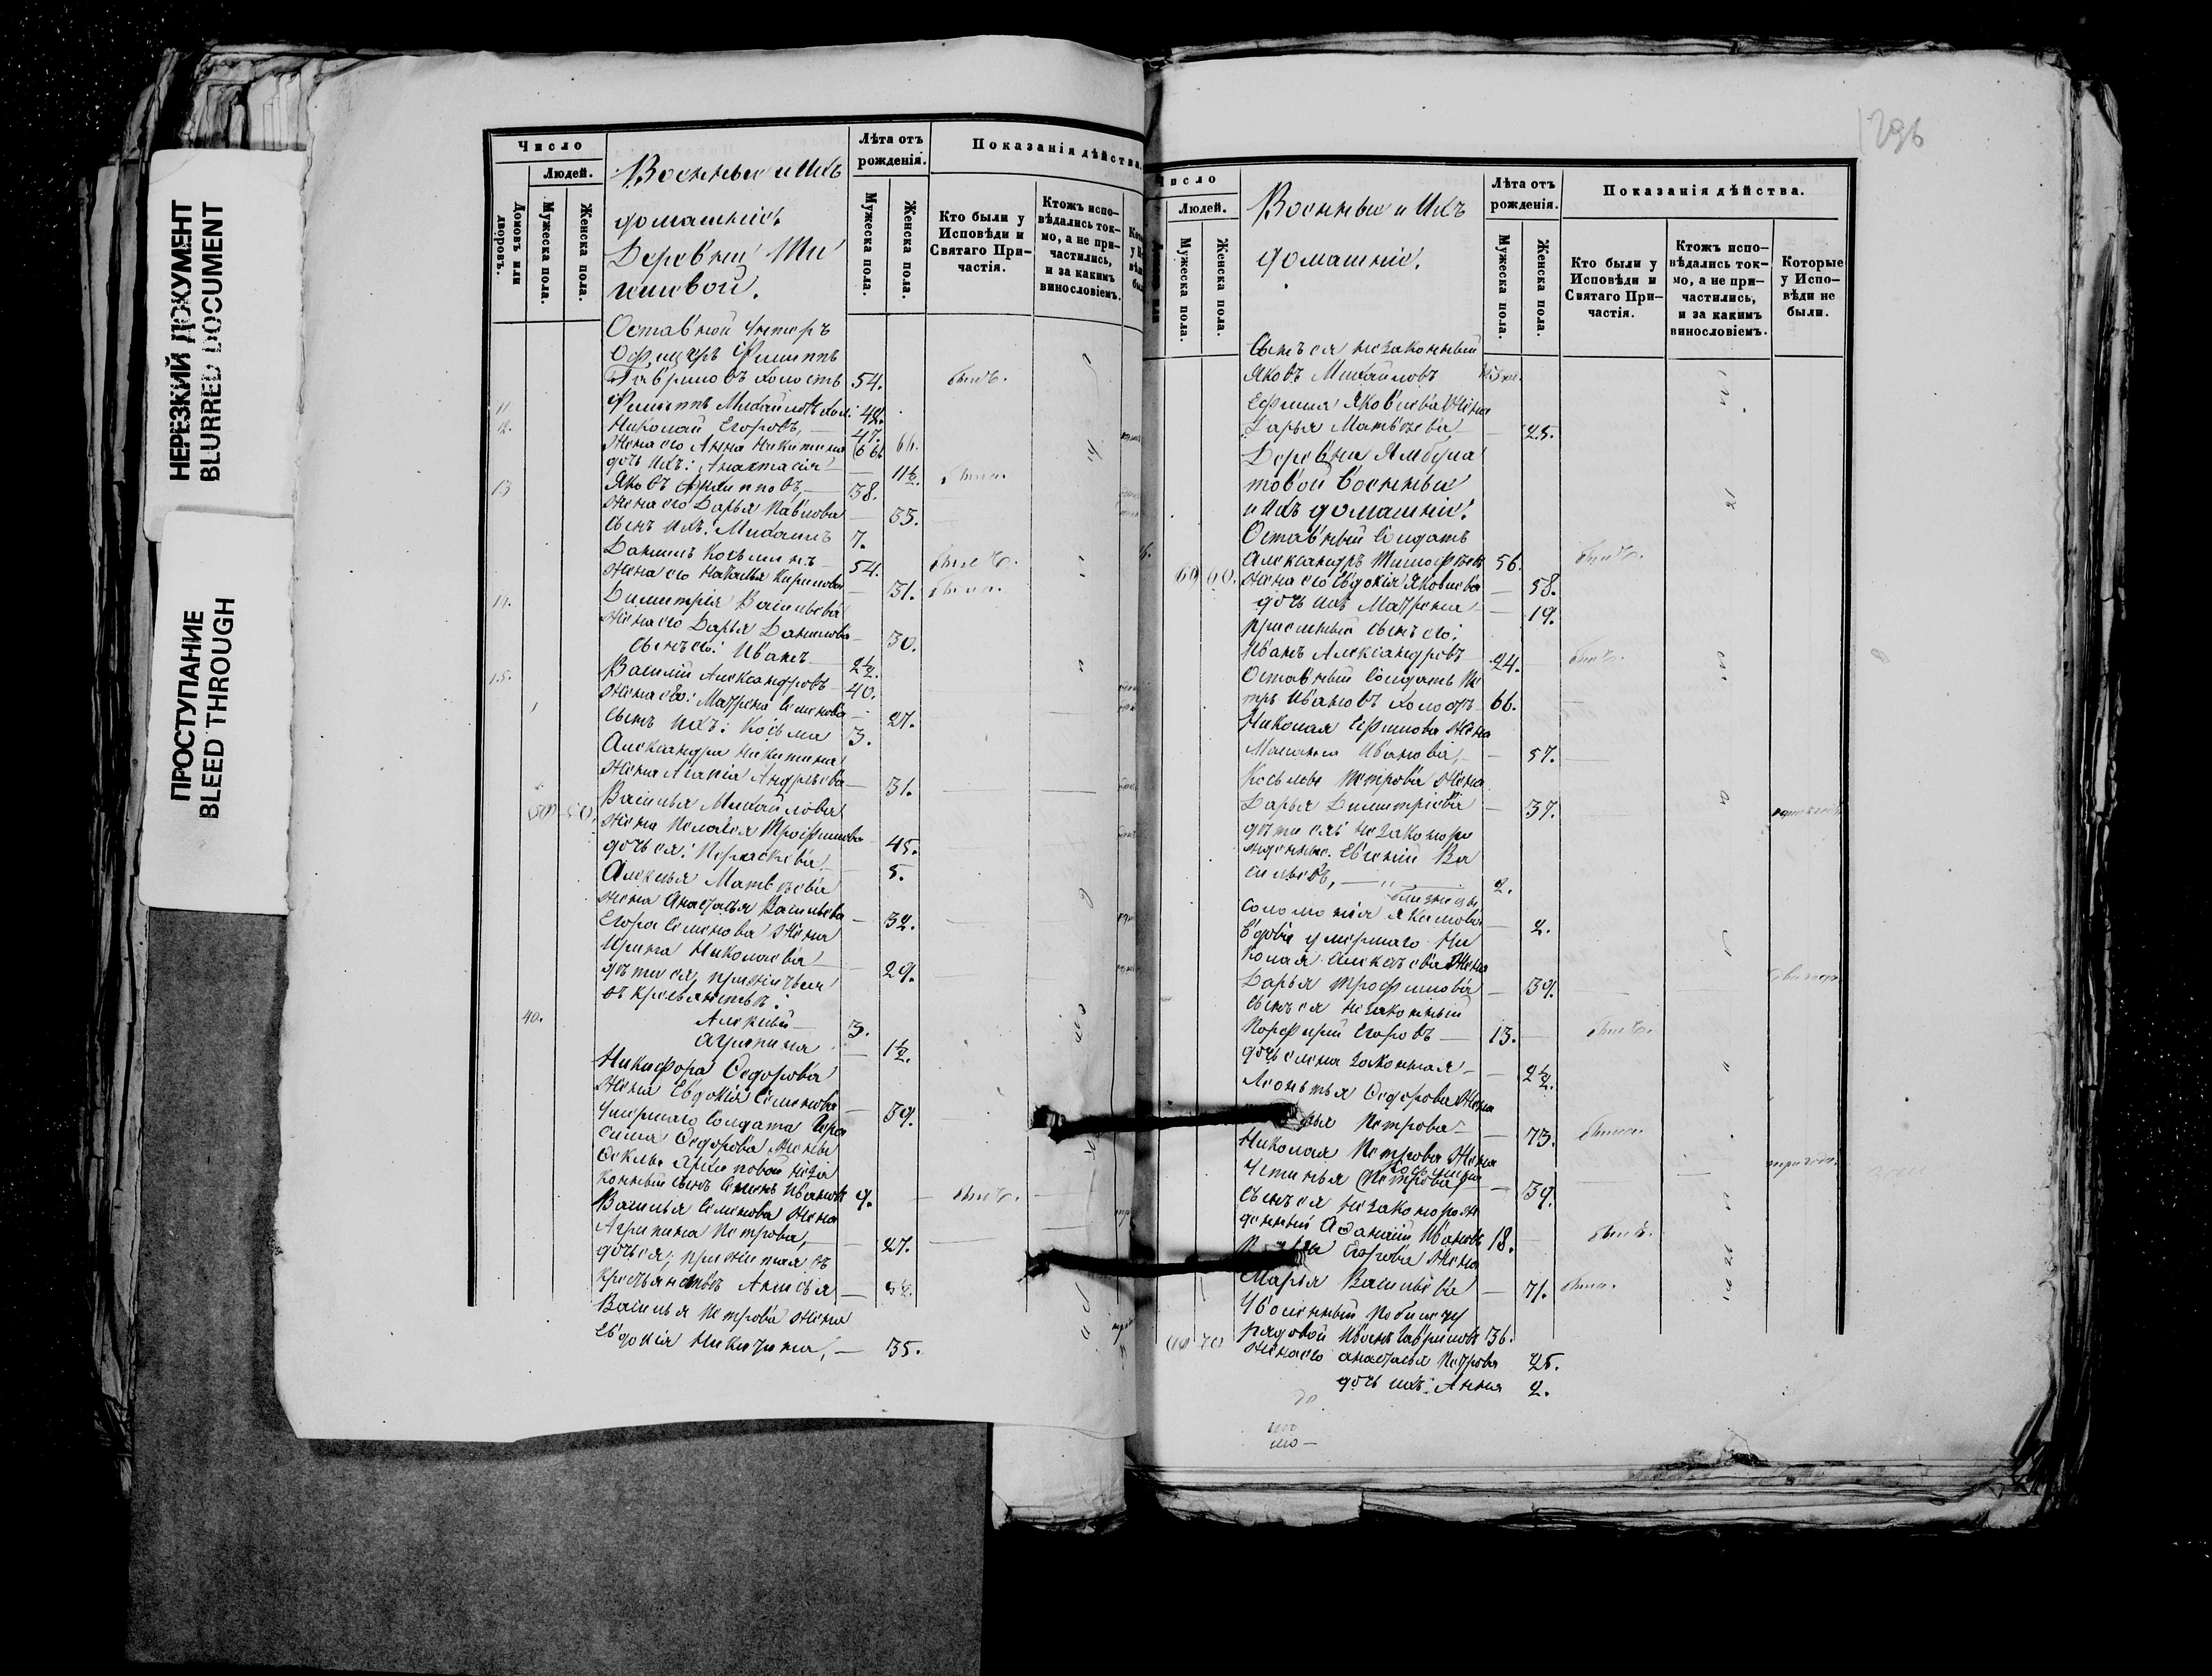 НЕРЕЗКИЙ ДОКУМЕНТ
BLURRED DOCUMENT
ПРОСТУПАНИЕ
BLEED THROUGH
Число
Людей.
Домовъ или дворовъ.
Мужеска пола.
Женска пола.
Военные и ихъ
домашніе
Деревни
Лѣта отъ рожденія.
Мужеска пола.
Женска пола.
Показанія дѣйства.
Кто были у Исповѣди и Святаго Причастія.
Ктожъ исповѣдались токмо, а не причастились, и за какимъ винословіемъ.
Оставной Унтеръ
Офицеръ Филиппъ
Гавриловъ холостъ 54. былъ.
11. Филиппъ Михайловъ хол: 42.
12. Николай Егоровъ, 47.
Жена его Анна Никитина 66.
дочь ихъ: Анастасія 11½
13 Яковъ Филипповъ, 38.
Жена его Дарья Павлова 35.
Сынъ ихъ: Михаилъ 7.
Даніилъ Косьминъ 54.
Жена его Наталья Кирилова 31.
14. Димитрія Васильева
Жена его Дарья Данилова 30.
Сынъ его: Иванъ 2½
15. Василій Александровъ 40.
Жена его: Матрена Семенова 27.
Сынъ ихъ: Косьма 3.
Александра Никитина
Жена Агапія Андреева 31.
Василья Михайлова
Жена Пелагея Трофимова 45.
дочь ея: Параскева 5.
Алексея Матвеева
Жена Анастасья Васильева 32.
Егора Семенова Жена
Ирина Николаева 29.
дѣти ея, прижитыя
въ крестьянствѣ:
40. Алексій 3.
Агрипина 1½.
Никифора Ѳедорова
Жена Евдокія Семенова 39.
Умершаго Солдата
Ѳедорова Жены
Ѳеклы Архиповой неза
конный сынъ Семенъ Ивановъ 9. былъ.
Василья Семенова Жена
Агрипина Петрова, 27.
дочь ея, прижитая въ
крестьянствѣ Анисья
Василья Петрова Жена
Евдокія Никитина, 35.
Число
Людей.
Мужеска пола.
Женска пола.
Военные и Ихъ
домашніе.
Лѣта отъ рожденія.
Мужеска пола.
Женска пола.
Показанія дѣйства.
Кто были у Исповѣди и Святаго Причастія.
Ктожъ исповѣдались токмо, а не причастились, и за какимъ винословіемъ.
Которые у Исповѣди не были.
Сынъ ея незаконный
Яковъ Михайловъ
Ефима Яковлева Жена
Дарья Матвеева 25.
Деревни
Военные
и Ихъ домашніе.
Оставный Солдатъ
Александръ Тимофеевъ 56. былъ.
Жена его Евдокія Яковлева 58.
дочь ихъ Матрена 19.
приемный сынъ его:
Иванъ Александровъ 24. былъ.
Оставный Солдатъ Пе
тръ Ивановъ холостъ 66.
Николая Ефимова Жена
Маланья Иванова, 57.
Косьмы Петрова Жена
Дарья Димитріева 37.
дѣти ея: незаконоро
жденные. Евгеній Ва
сильевъ, 2.
близнецы
Соломонія Якимова 2.
Вдова умершаго Ни
колая Алексеева Жена
Дарья Трофимова 39.
Сынъ ея незаконный
Порфирій Егоровъ 13. былъ.
дочь ея незаконная 2½.
Леонтья Ѳедорова Жена
Петрова 73. была.
Николая Петрова Жена
Устинья Петрова 39.
Сынъ ея незаконорож
денный Афанасій Ивановъ 18. былъ.
Егорова Жена
Марья Васильева 71. была.
Уволенный по билету
рядовой Иванъ Гавриловъ 36.
Жена его Анастасья Петрова 25.
дочь ихъ: Анна 2.